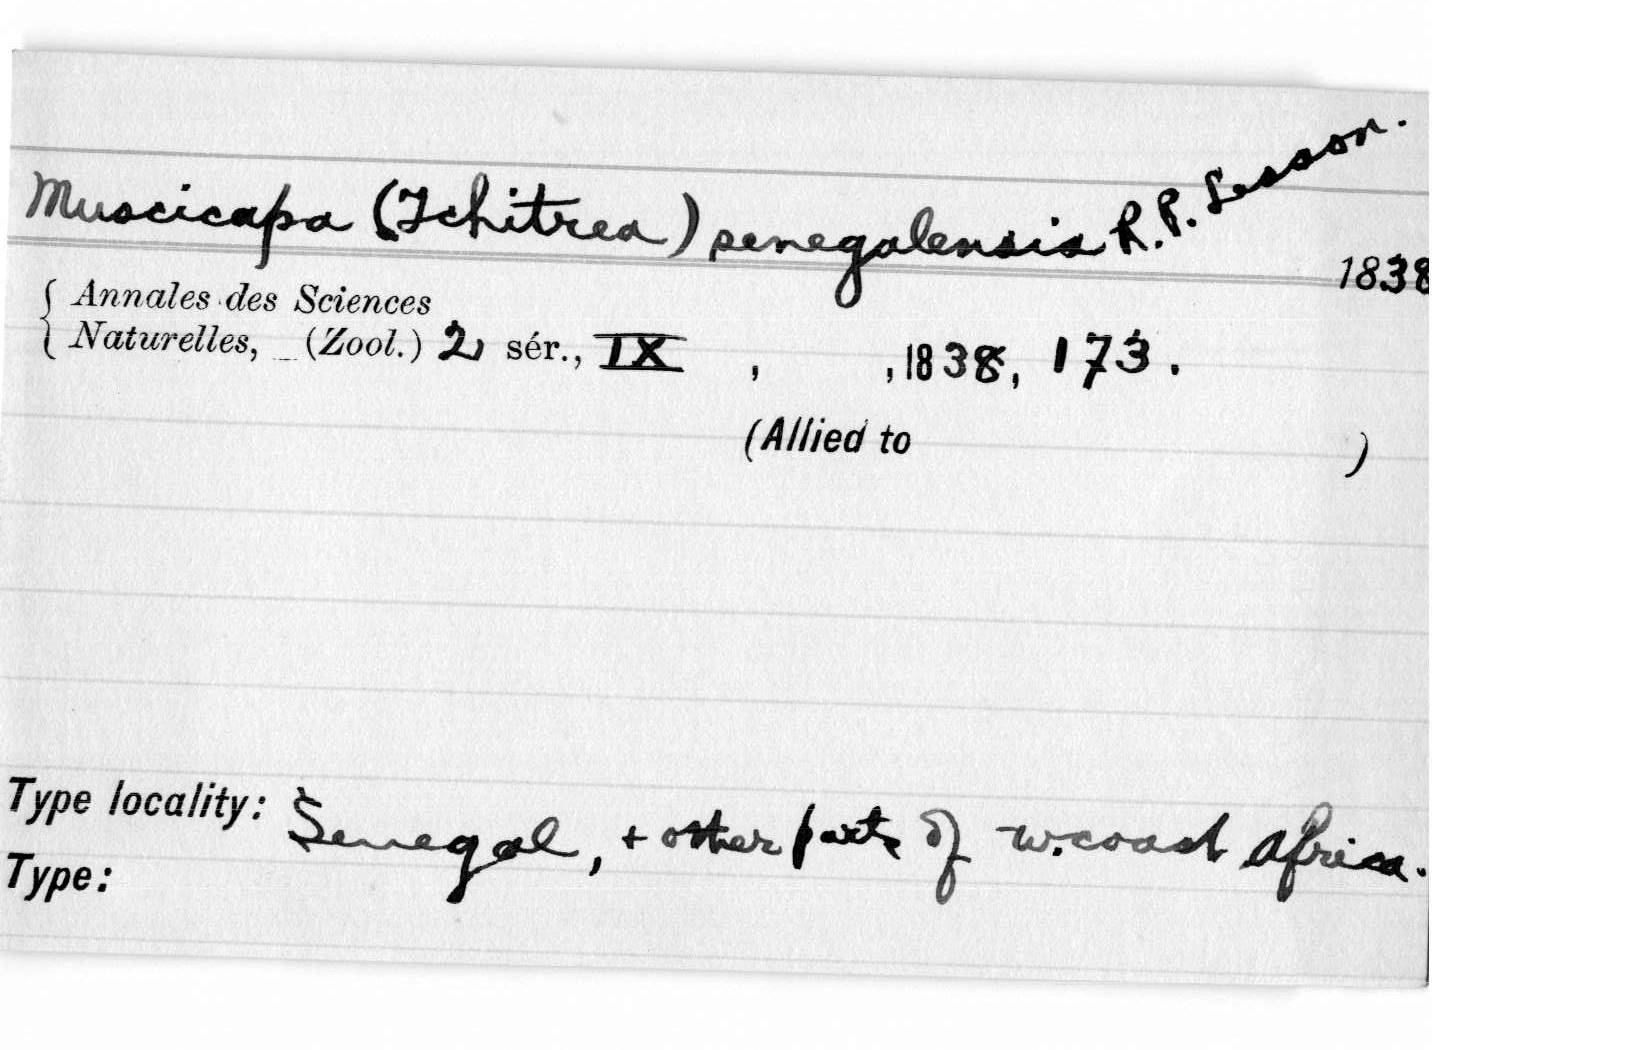 Muscicapa (Tchitrea) senegalensis R.P. Lesson.
1838
{ Annales des Sciences
Naturelles, _ (Zool.) 2 sér., IX , , 1838, 173.
(Allied to )
Type locality: Senegal, + other parts of w. coast Africa.
Type: